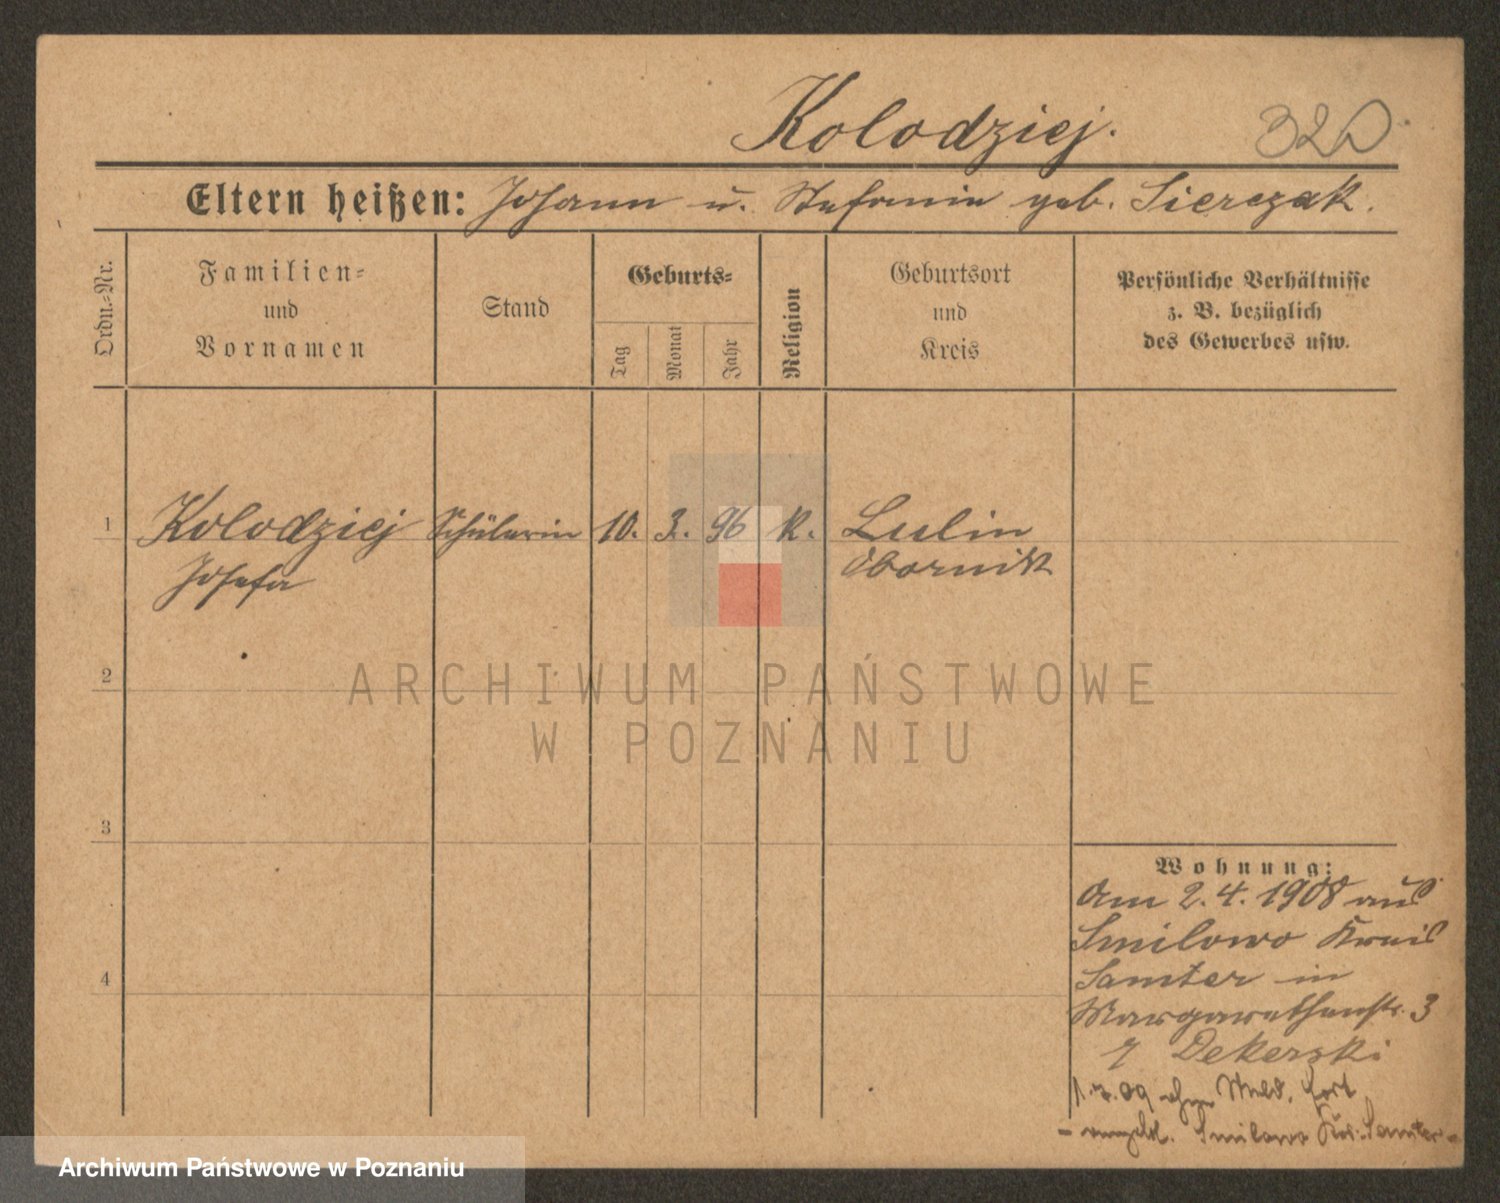 Kolodziej.
320
Eltern heißen: Johann u. Stefanie geb. Sierczak.
Ordn.-Nr.
Familien-
und
Vornamen
Stand
Geburts-
Tag
Monat
Jahr
Religion
Geburtsort
und
Kreis
Persönliche Verhältnisse
z. B. bezüglich
des Gewerbes usw.
1 Kolodziej Schülerin 10. 3. 96 K. Lulin
Josefa Obornik
2
ARCHIWUM PAŃSTWOWE
W POZNANIU
3
Wohnung:
Am 2. 4. 1908 aus
Smilowo Kreis
4
Samter in
Margarethenstr. 3
Dekerski
09 ohne Meld. fort
Smilowo Krs. Samter
Archiwum Państwowe w Poznaniu